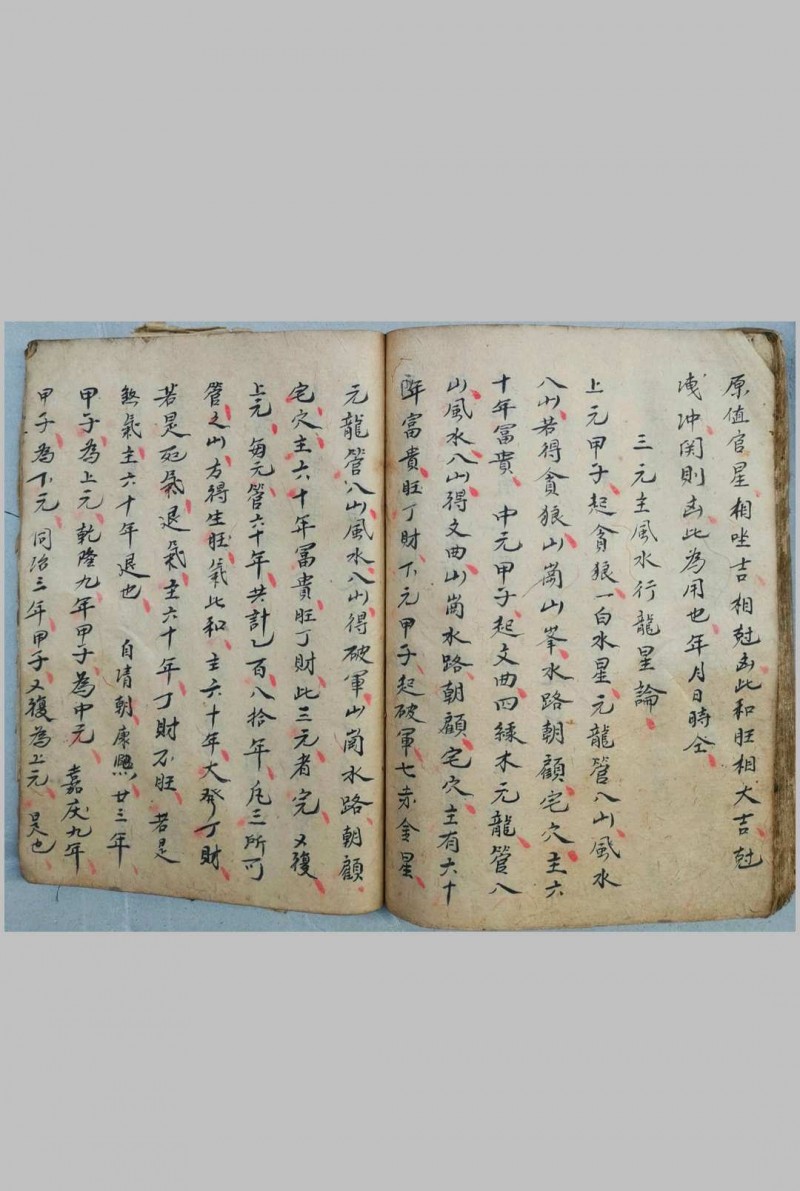 原值官星相唑吉相尅凶此和旺相大吉尅
洩冲関則凶此為用也年月日時仝
三元主風水行龍星論
上元甲子起貪狼一白水星元龍管八山風水
八山若得貪狼山崗山峯水路朝顧宅穴主六
十年冨貴中元甲子起文曲四緑木元龍管八
山風水八山得文曲山崗水路朝顧宅穴主有六十
年富貴旺丁財下元甲子起破軍七赤金星
元龍管八山風水八山得破軍山崗水路朝顧
宅穴主六十年冨貴旺丁財此三元者完又復
上元每元管六十年共計乙百八拾年凡三所可
管之山方得生旺氣此和主六十年大發丁財
若是死氣退氣主六十年丁財不旺若是
煞氣主六十年退也自清朝康熈廿三年
甲子為上元乾隆九年甲子為中元嘉庆九年
甲子為下元同治三年甲子又復為上元是也